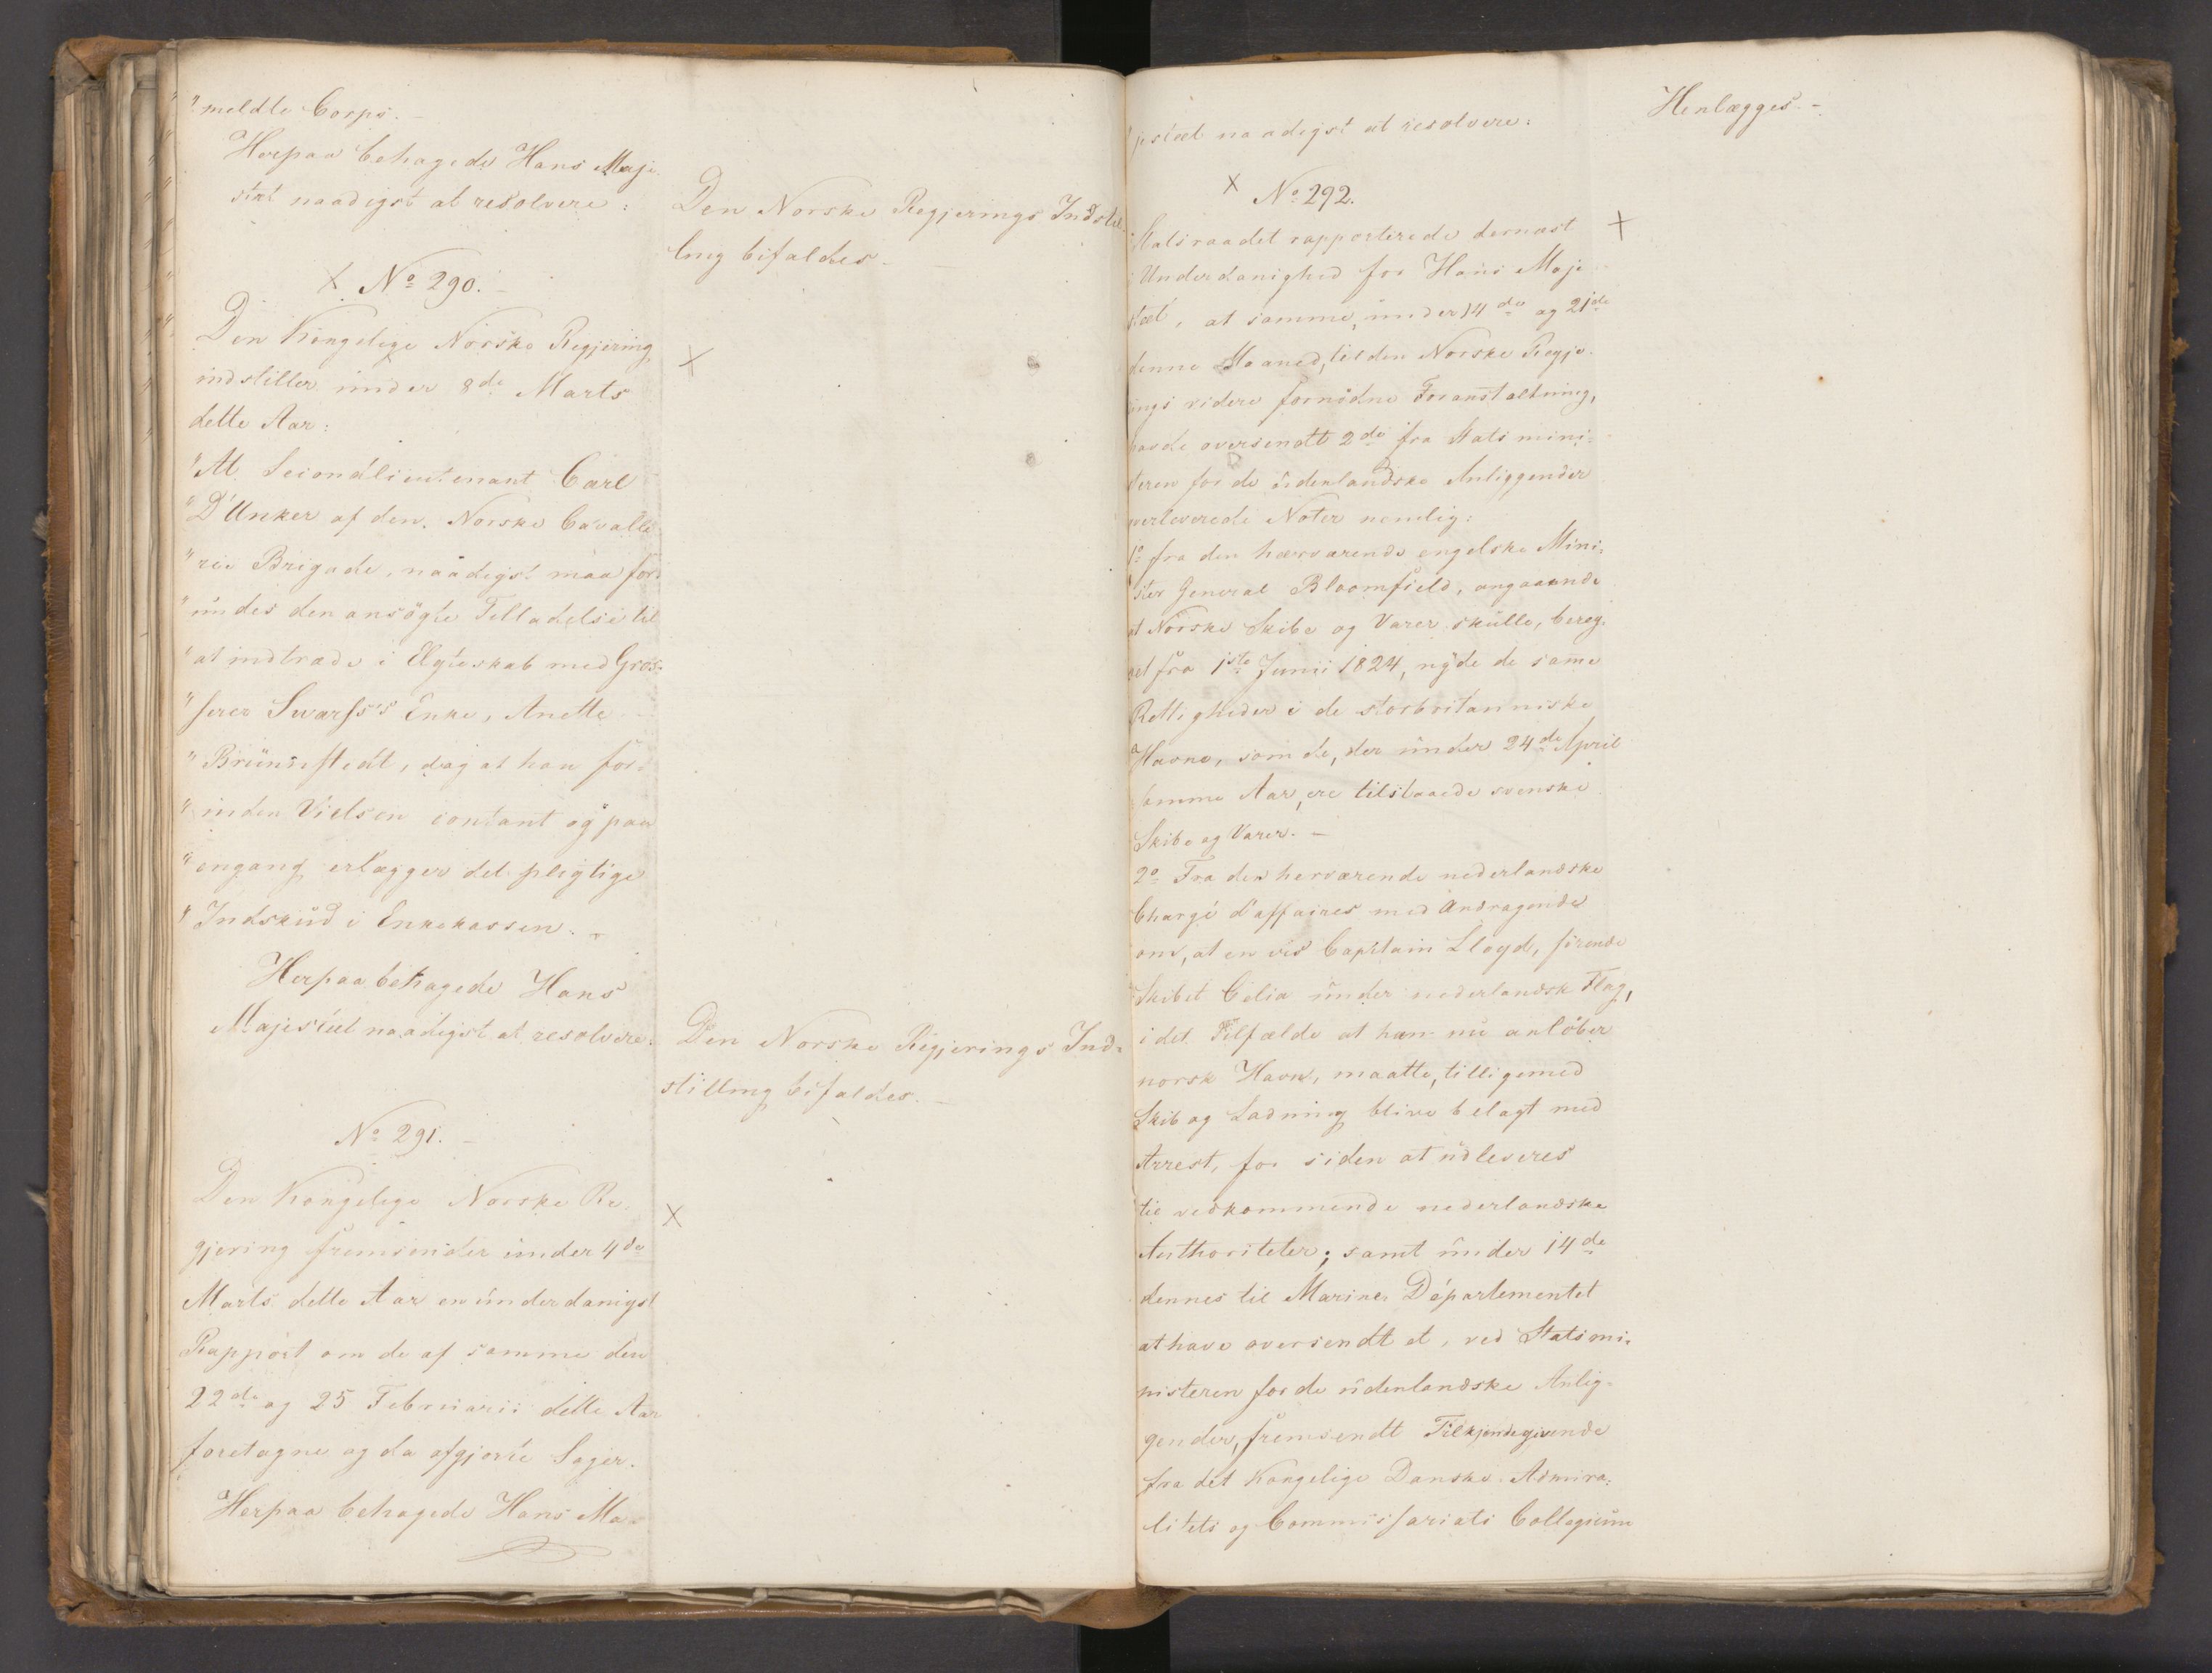 "meldte Corps. -
Herpaa behagede Hans Maje-
stæt naadigst at resolvere:
Den Norske Regjerings Indstil-
ling bifaldes. -
X No 290. -
Den Kongelige Norske Regjering
indstiller under 8de Marts
dette Aar:
X
"At Secondlieutenant Carl
"D'Unker af den Norske Cavalle-
"rie Brigade, naadigst maa for-
"undes den ansøgte Tilladelse til
"at indtræde i Ægteskab med Gros-
"serer Swarfs's Enke, Anette
"Brünistedt, dog at han for-
"inden Vielsen contant og paa
"engang erlægger det pligtige
"Indskud i Enkekassen. -
Herpaa behagede Hans
Majestæt naadigst at resolvere:
Den Norske Regjerings Ind-
stilling bifaldes. -
No 291. -
Den Kongelige Norske Re-
gjering fremsender under 4de
Marts dette Aar en underdanigst
Rapport om de af samme den
22de og 25 Februarii dette Aar
foretagne og da afgjorte Sager.
X
Herpaa behagede Hans Ma-
jestæt naadigst at resolvere:
Henlægges. -
X No 292.
Statsraadet rapporterede dernæst
X
i Underdanighed for Hans Maje-
stæt, at samme, under 14de og 21de
denne Maaned, til den Norske Regje-
rings videre fornødne Foranstaltning,
havde oversendt 2de fra Statsmini-
steren for de udenlandske Anliggender
overleverede Noter nemlig:
1o fra den herværende engelske Mini-
ster General Bloomfield, angaaende
at Norske Skibe og Varer skulle, bereg-
net fra 1ste Junii 1824, nyde de same
Rettigheder i de storbritanniske
Havne, som de, der under 24de April
samme Aar, ere tilstaaede svenske
Skibe og Varer. -
2o Fra den herværende nederlandske
Chargé d'affaires med Andragende
om, at en vis Capitain Lloyd, førende
Skibet Celia under nederlandsk Flag,
i det Tilfælde at han nu anløber
norsk Havn, maatte, tilligemed
Skib og Ladning blive belagt med
Arrest, for siden at udleveres
til vedkommende nederlandske
Authoriteter; samt under 14de
dennes til Marine-Departementet
at have oversendt et, ved Statsmi-
nisteren for de udenlandske Anlig-
gender, fremsendt Tilkjendegivende
fra det Kongelige Danske Admira-
litets og Commissariats Collegium